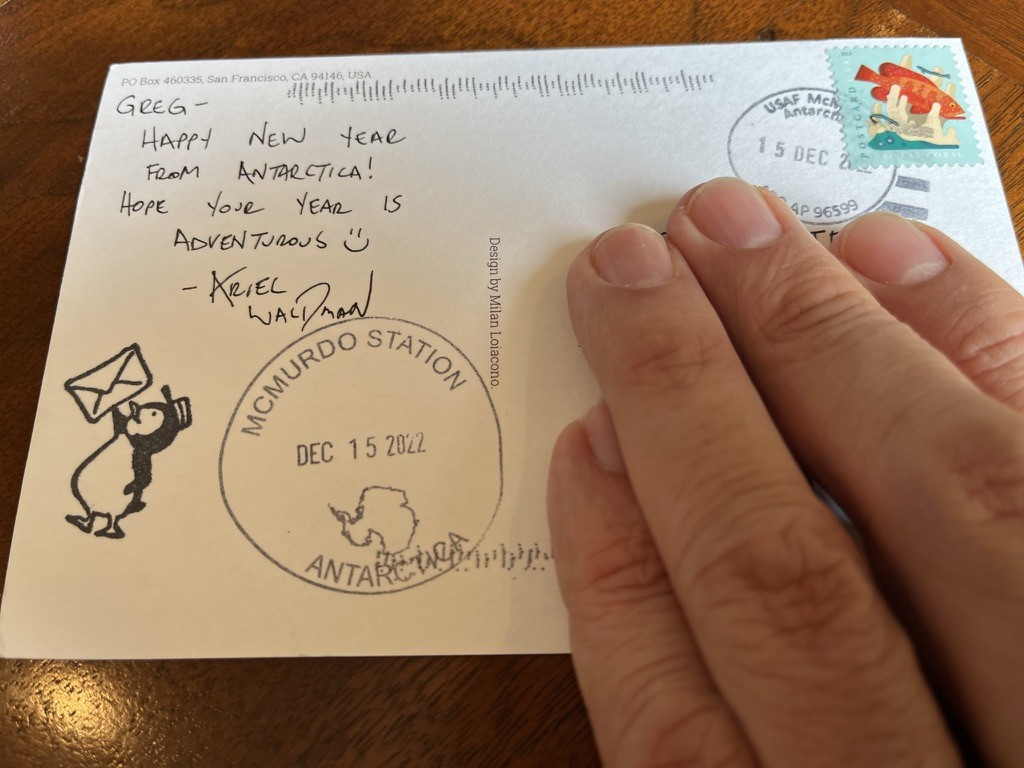 PO Box 460335, San Francisco, CA 94146, USA
GREG-
HAPPY NEW YEAR
FROM ANTARCTICA!
HOPE YOUR YEAR IS
ADVENTUROUS
- ARIEL
WALDMAN
Design by Milan Loiacono.
MCMURDO STATION
DEC 15 2022
ANTARCTICA
USAF McM
Antarct
15 DEC 2
AP 96599
POSTCARD
CORAL